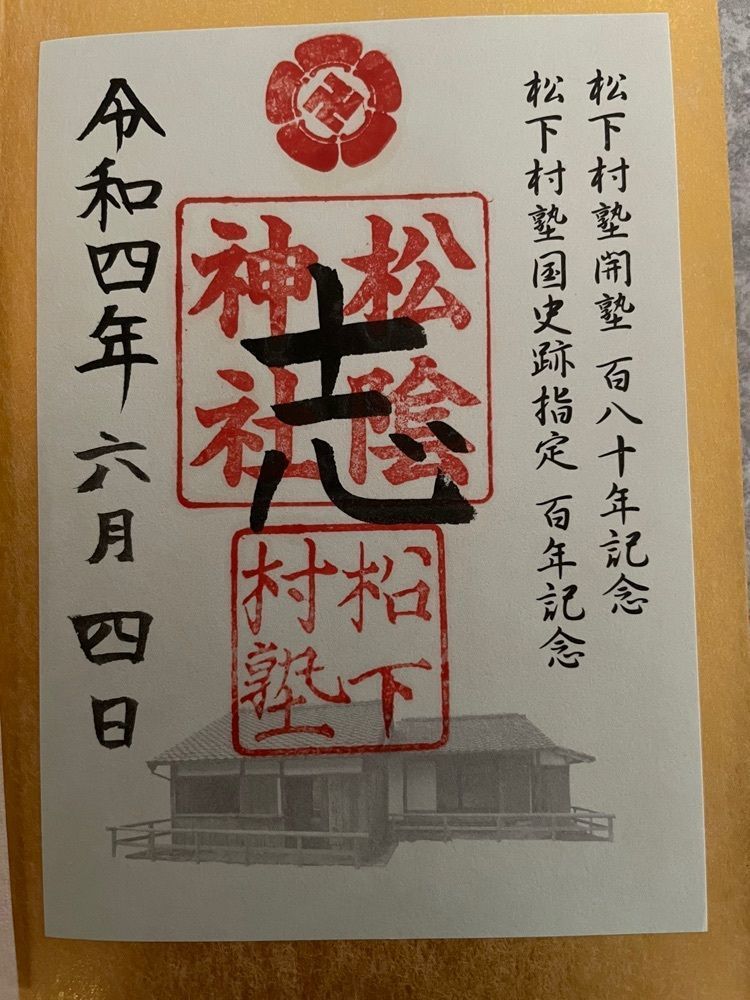 松下村塾開塾 百八十年記念
松下村塾国史跡指定 百年記念
松陰
神社
志
松下
村塾
令和四年 六月 四日